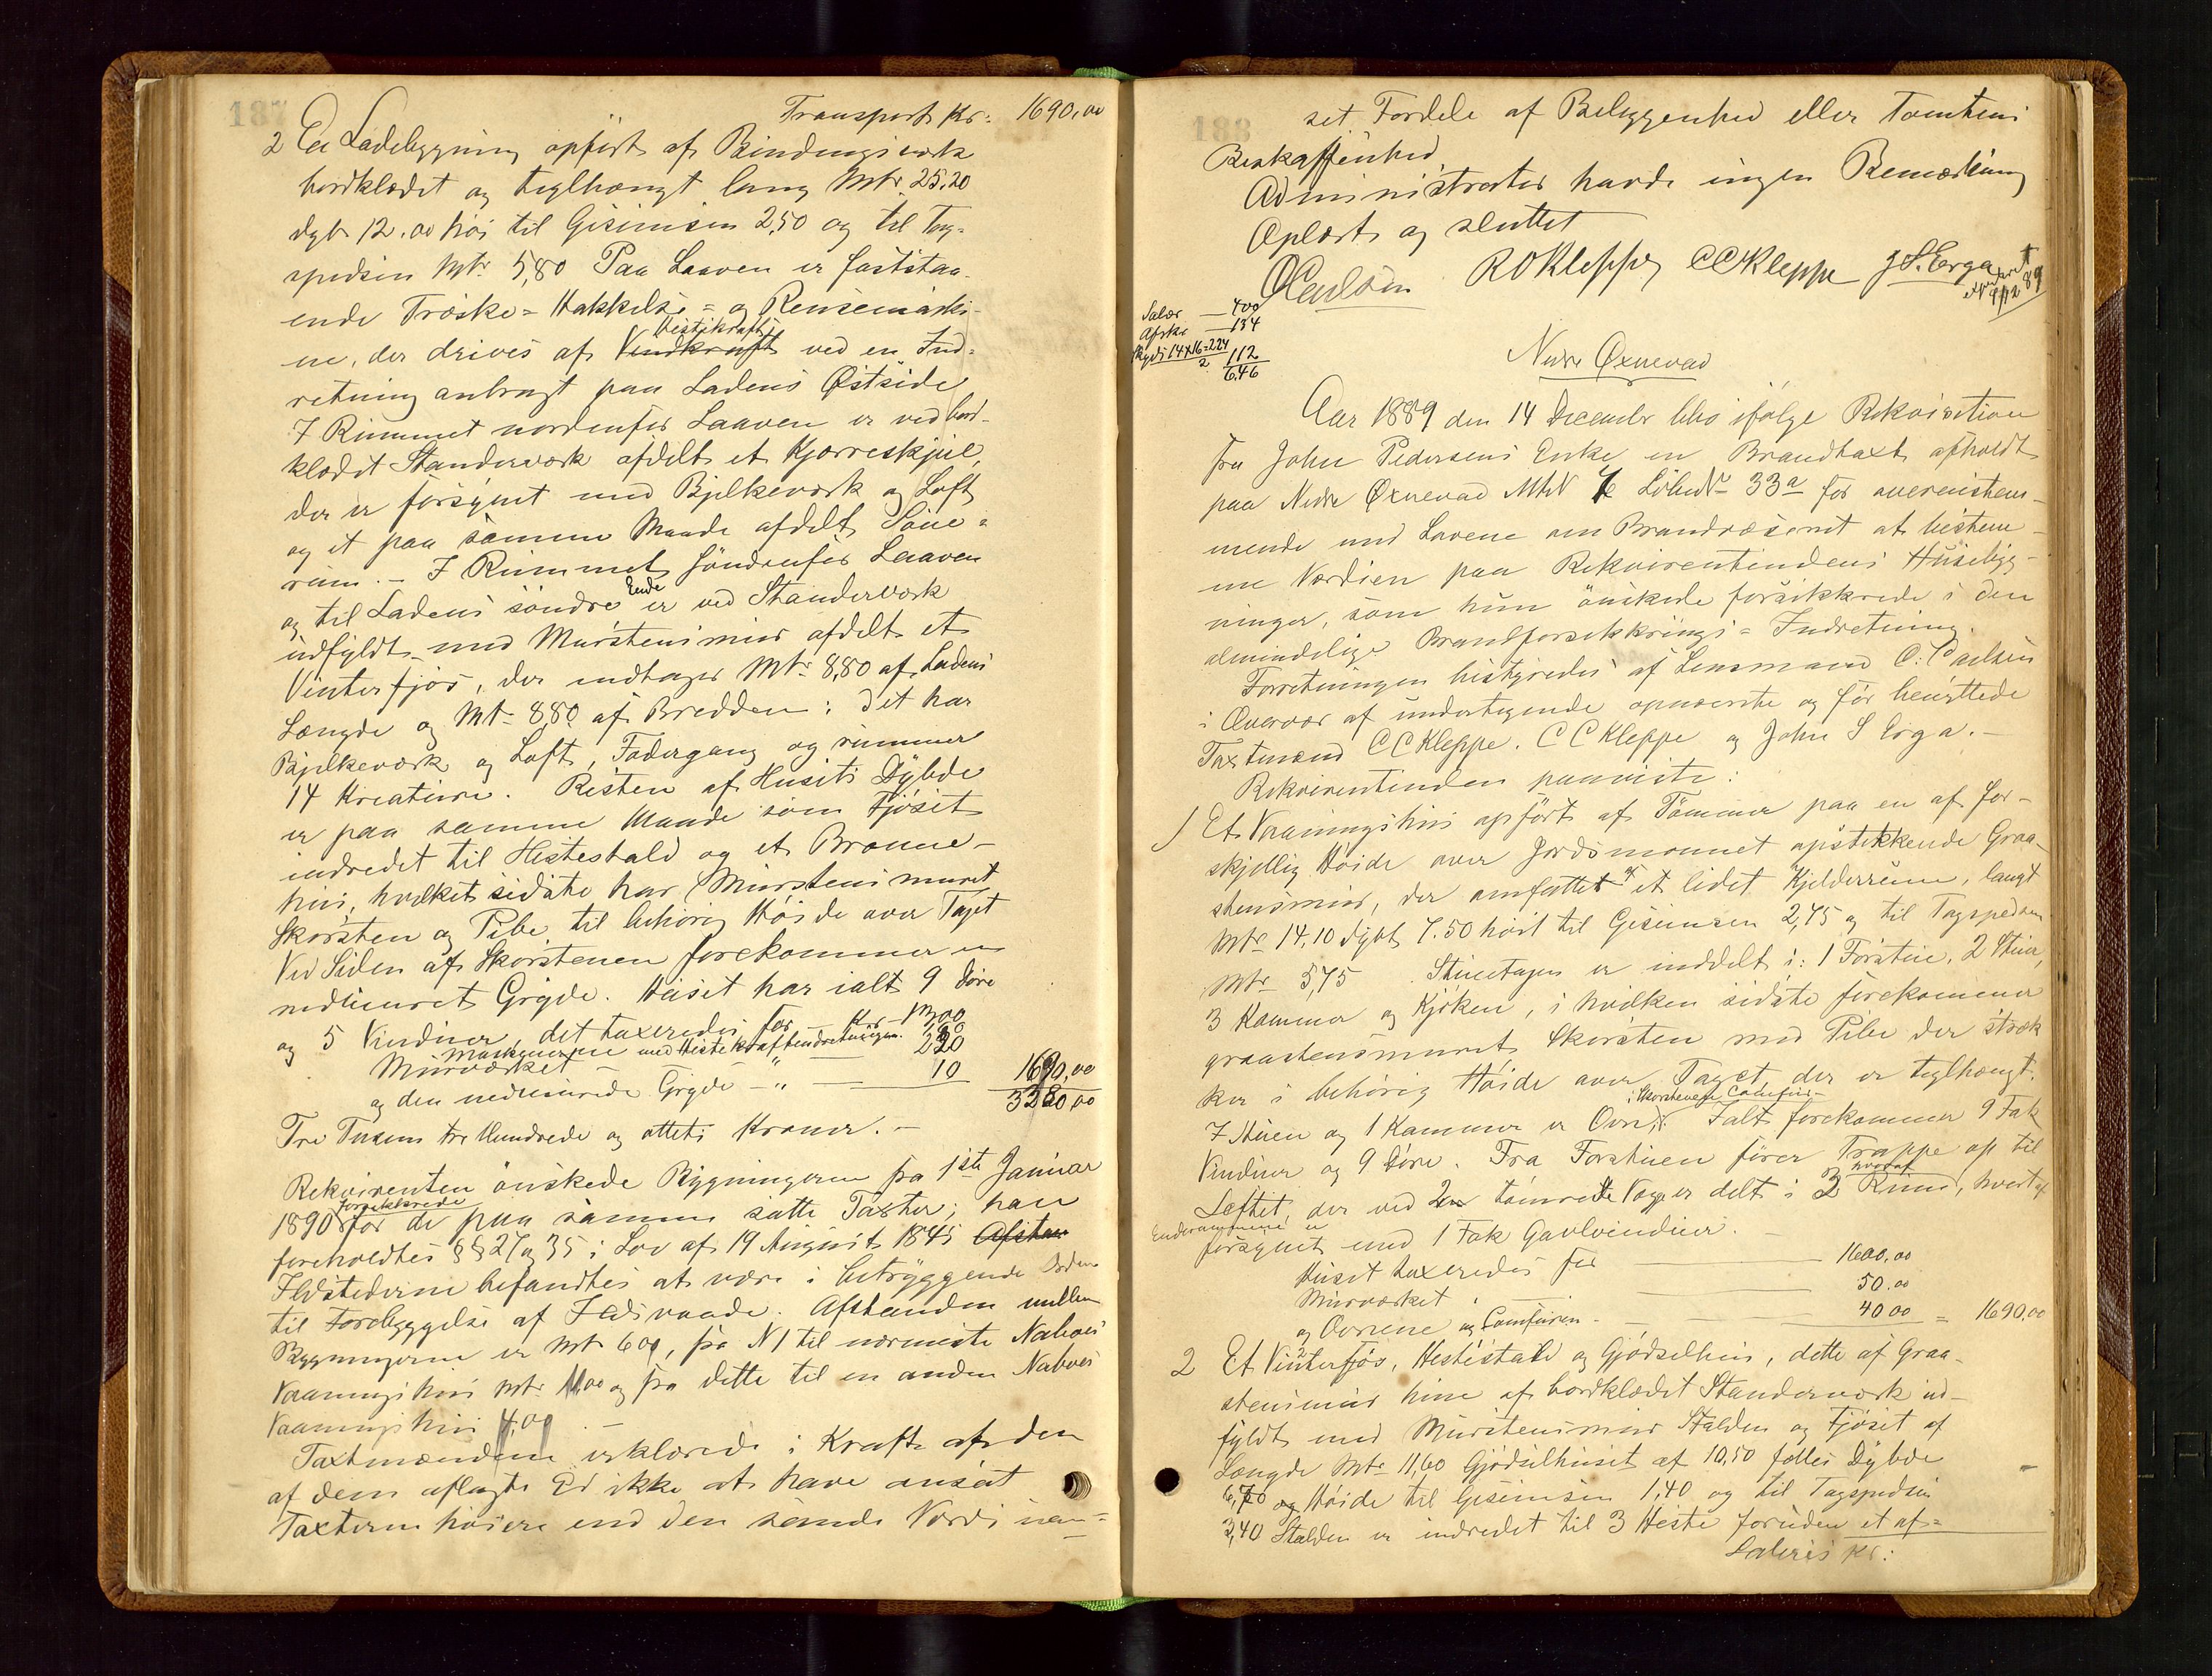 187
Transport Kr: 1690,00
2 En Ladebygning opført af Bindingsværk
bordklædt og teglhængt lang Mtr 25,20
dyb 12,00 høi til Gesimsen 2,50 og til Tag-
spidsen Mtr 5,80 Paa Laaven er faststaa-
ende Træske= Hakkelse= og Rensemaski-
ne, der drives af Vindkraft Hestekraft ved en Ind-
retning anbragt paa Ladens Østside
I Rummet nordenfor Laaven er ved bord-
klædt Standerværk afdelt et Kjærreskjul,
der er forsynet med Bjelkeværk og Loft
og et paa samme Maade afdelt
rum. - I Rummet søndenfor Laaven
og til Ladens søndre Ende er ved Standerværk
udfyldt med Murstensmur afdelt et
Vinterfjøs, der indtager Mtr 8,80 af Ladens
Længde og Mtr 8,80 af Bredden; det har
Bjelkeværk og Loft, Fodergang og rummer
14 Kreature. Resten af Husets Dybde
er paa samme Maade som Fjøset
indredet til Hestestald og et Brønne-
hus, hvilket sidste har Murstensmuret
Skorsten og Pibe til behørig Høide over Taget
Ved Siden af Skorstenen forekommer en
nedmuret Gryde. Huset har ialt 9 Døre
og 5 Vinduer, det taxeredes for Kr 1300
Maskinerne med Hestekraftindretningen
Murværket 220
og den nedmurede Gryde - " - 10 1690,00
3380,00
Tre Tusen tre Hundrede og otteti Kroner. -
Rekvirenten ønskede Bygningerne fra 1ste Januar
1890 forsikkrede for de paa samme satte Taxter; han
foreholdtes §§ 27 og 35 i Lov af 19 August 1845 Afstan
Ildstederne befandtes at være i betryggende Orden
til Forebyggelse af Ildsvaade. Afstanden mellem
Bygningerne er Mtr 600, fra N 1 til nærmeste Naboes
Vaaningshus Mtr 1100 og fra dette til en anden Naboes
Vaaningshus 4,00 -
Taxtmændene erklærede i Kraft af den
af dem aflagte Ed ikke at have ansat
Taxterne høiere end den sande Værdi uan=
188
set Fordele af Beliggenhed eller Tomtens
Beskaffenhed
Administrator havde ingen Bemærkning
Oplæst og sluttet
O Carlsen R O Kleppe C C Kleppe J S. Erga
9/12 89
Salær — 400
Afskr — 134
Skyds 14x16=224
2 112
6,46
Nedre Øxnevad
Aar 1889 den 14 December blev ifølge Rekvisition
fra John Pedersens Enke en Brandtaxt afholdt
paa Nedre Øxnevad MtrN 7 LøbeN 33a for overenstem-
mende med Lovene om Brandvæsenet at bestem-
me Værdien paa Rekvirentindens Husebyg-
ninger, som hun ønskede forsikkrede i den
almindelige Brandforsikkrings= Indretning.
Forretningen bestyredes af Lensmand O. Carlsen
i Overvær af undertegnende opnævnte og før benyttede
Taxtmænd C C Kleppe. C C Kleppe og John S Erga. -
Rekvirentinden paaviste:
1 Et Vaaningshus opført af Tømmer paa en af for-
skjellig Høide over Jordsmonnet opstikkende Graa-
stensmur, der omfatter et lidet Kjelderrum, langt
Mtr 14,10 dybt 7.50 høit til Gesimsen 2,75 og til Tagspidsen
Mtr 5,75. Stueetagen er inddelt i: 1 Forstue, 2 Stuer,
3 Kammer og Kjøken, i hvilken sidste forekommer
graastensmuret Skorsten med Pibe der stræk
ker i behørig Høide over Taget der er teglhængt.
I Stuen og 1 Kammer er Ovne, i Skorstenen Comfur - Ialt forekommer 9 Fak
Vinduer og 9 Døre. Fra Forstuen fører Trappe op til
Loftet, der ved 2 tømrede Vægge er delt i 3 Rum, hvoraf
Enderummene er
forsynet med 1 Fak Gavlvinduer. -
Huset taxeredes for — 1600,00
Murværket — 50.00
og Ovnene og Comfuren - 40 00 = 1690,00
2 Et Vinterfjøs, Hestestald og Gjødselhus, dette af Graa-
stensmur hine af bordklædt Standerværk ud-
fyldt med Murstensmur Stalden og Fjøset af
Længde Mtr 11,60 Gjødselhuset af 10,50 fælles Dybde
6,70 og Høide til Gesimsen 1,40 og til Tagspidsen
3,40 Stalden er indredet til 3 Heste foruden et af=
Lateris Kr: